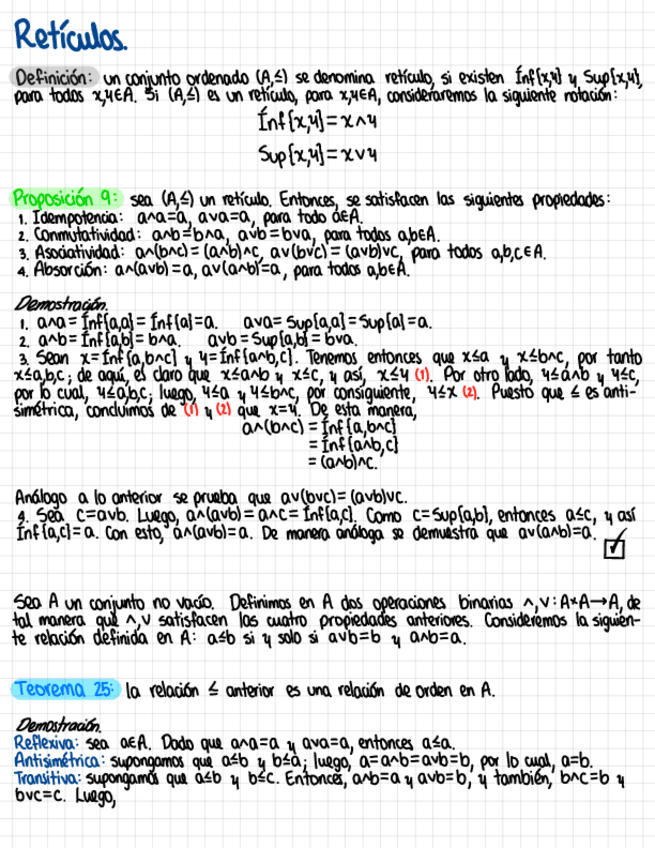 Retículos.
Definición: un conjunto ordenado (A,≤) se denomina retículo, si existen Ínf{x,y} y Sup{x,y},
para todos x,y∈A. Si (A,≤) es un retículo, para x,y∈A, consideraremos la siguiente notación:
Ínf{x,y}=x∧y
Sup{x,y}=x∨y
Proposición 9: sea (A,≤) un retículo. Entonces, se satisfacen las siguientes propiedades:
1. Idempotencia: a∧a=a, a∨a=a, para todo a∈A.
2. Conmutatividad: a∧b=b∧a, a∨b=b∨a, para todos a,b∈A.
3. Asociatividad: a∧(b∧c)=(a∧b)∧c, a∨(b∨c)=(a∨b)∨c, para todos a,b,c∈A.
4. Absorción: a∧(a∨b)=a, a∨(a∧b)=a, para todos a,b∈A.
Demostración.
1. a∧a=Ínf{a,a}=Ínf{a}=a. a∨a=Sup{a,a}=Sup{a}=a.
2. a∧b=Ínf{a,b}=b∧a. a∨b=Sup{a,b}=b∨a.
3. Sean x=Ínf{a,b∧c} y y=Ínf{a∧b,c}. Tenemos entonces que x≤a y x≤b∧c, por tanto
x≤a,b,c; de aquí, es claro que x≤a∧b y x≤c, y así, x≤y (1). Por otro lado, y≤a∧b y y≤c,
por lo cual, y≤a,b,c; luego, y≤a y y≤b∧c, por consiguiente, y≤x (2). Puesto que ≤ es anti-
simétrica, concluimos de (1) y (2) que x=y. De esta manera,
a∧(b∧c)=Ínf{a,b∧c}
=Ínf{a∧b,c}
=(a∧b)∧c.
Análogo a lo anterior se prueba que a∨(b∨c)=(a∨b)∨c.
4. Sea c=a∨b. Luego, a∧(a∨b)=a∧c=Ínf{a,c}. Como c=Sup{a,b}, entonces a≤c, y así
Ínf{a,c}=a. Con esto, a∧(a∨b)=a. De manera análoga se demuestra que a∨(a∧b)=a.
Sea A un conjunto no vacío. Definimos en A dos operaciones binarias ∧,∨:A×A→A, de
tal manera que ∧,∨ satisfacen las cuatro propiedades anteriores. Consideremos la siguien-
te relación definida en A: a≤b si y solo si a∨b=b y a∧b=a.
Teorema 25: la relación ≤ anterior es una relación de orden en A.
Demostración.
Reflexiva: sea a∈A. Dado que a∧a=a y a∨a=a, entonces a≤a.
Antisimétrica: supongamos que a≤b y b≤a; luego, a=a∧b=a∨b=b, por lo cual, a=b.
Transitiva: supongamos que a≤b y b≤c. Entonces, a∧b=a y a∨b=b, y también, b∧c=b y
b∨c=c. Luego,